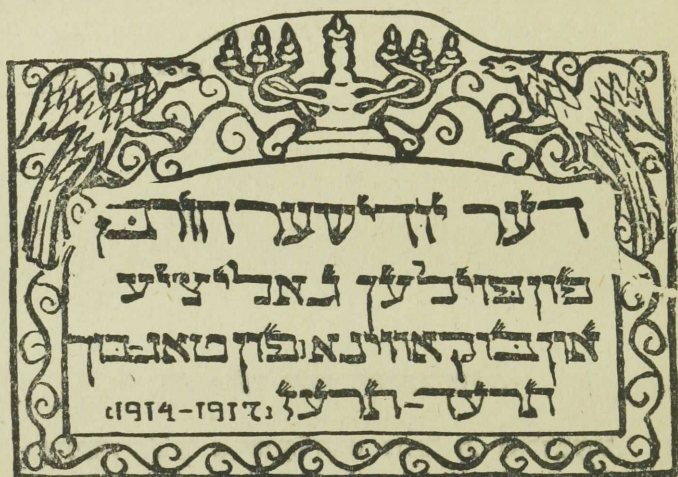 דער יודישער חורבן
פון פוילען גאליציע
און בוקאווינא, פון טאג-בוך
תרע״ד-תרע״ז (1914-1917)